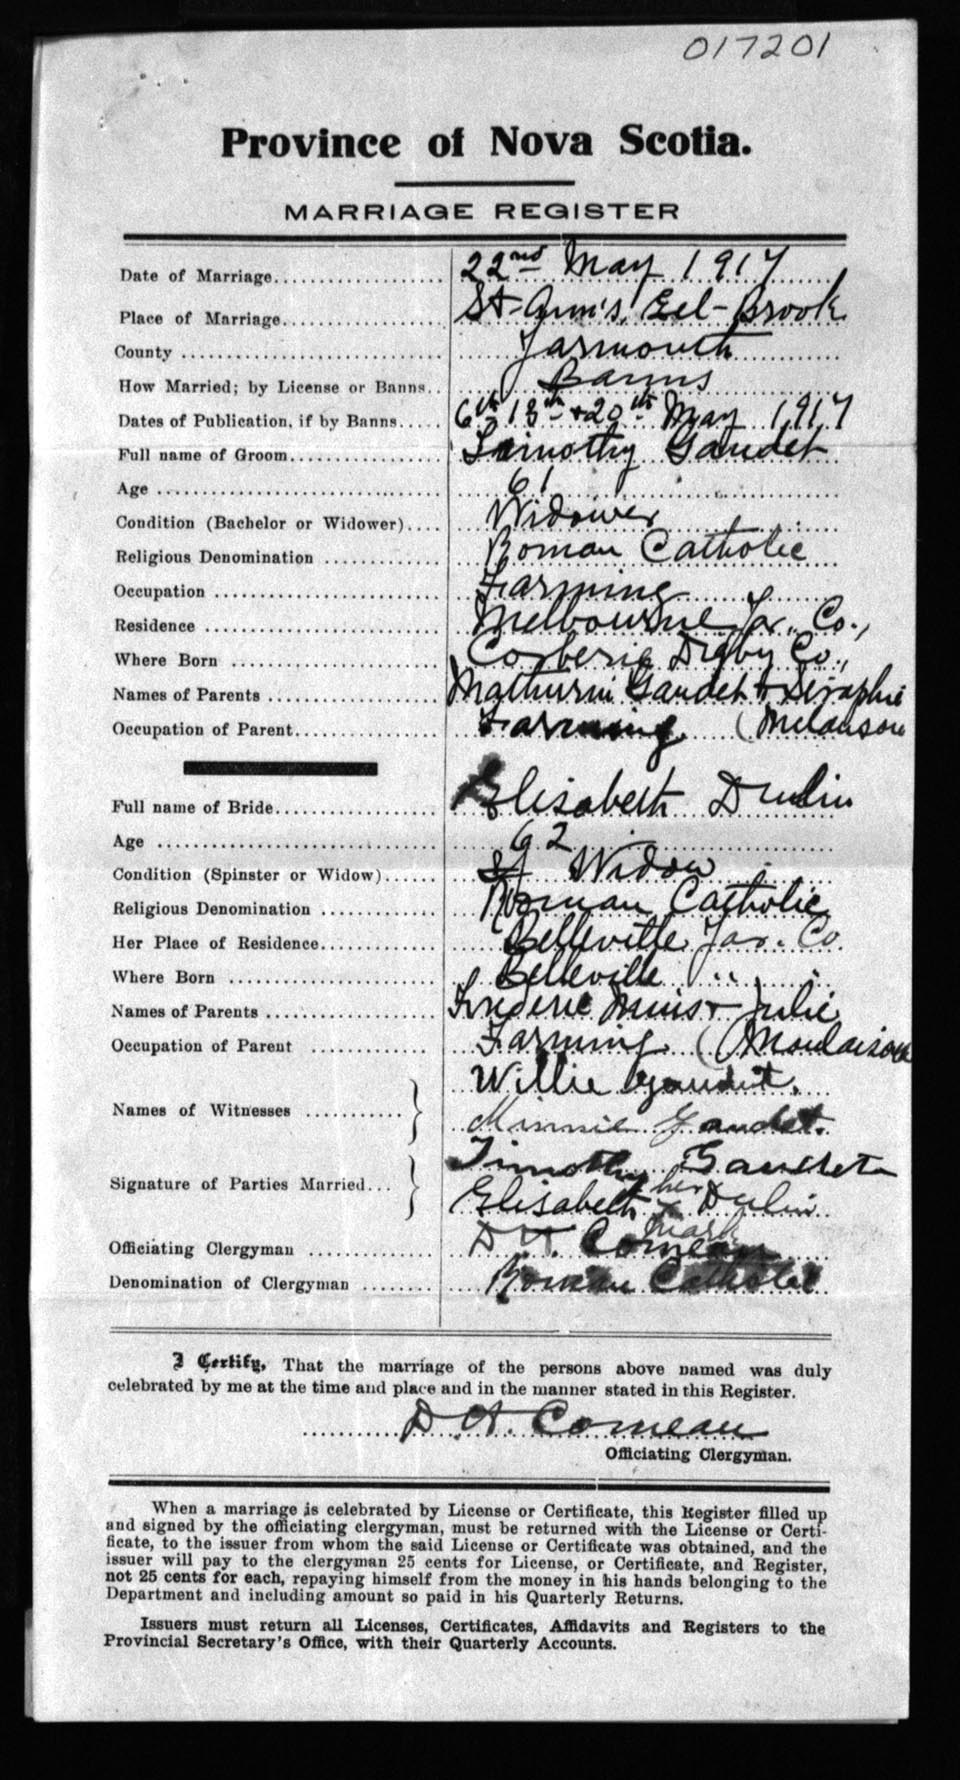 017201
Province of Nova Scotia.
MARRIAGE REGISTER
Date of Marriage 22nd May 1917
Place of Marriage St-Ann's, Eel-Brook
County Yarmouth
How Married; by License or Banns Banns
Dates of Publication, if by Banns 6th 13th + 20th May 1917
Full name of Groom Timothy Gaudet
Age 61
Condition (Bachelor or Widower) Widower
Religious Denomination Roman Catholic
Occupation Farming
Residence Melbourne Yar. Co.,
Where Born Corberie Digby Co.,
Names of Parents Mathurin Gaudet + Séraphie
Occupation of Parent Farming (Melanson
Full name of Bride Elisabeth Dulin
Age 62
Condition (Spinster or Widow) Widow
Religious Denomination Roman Catholic
Her Place of Residence Belleville Yar. Co
Where Born Belleville " "
Names of Parents Frederic Muis + Julie
Occupation of Parent Farming (Moulaison
Names of Witnesses Willie Gaudet.
Minnie Gaudet.
Signature of Parties Married Timothy Gaudet
Elisabeth her x mark Dulin
Officiating Clergyman D. A. Comeau
Denomination of Clergyman Roman Catholic
I Certify, That the marriage of the persons above named was duly
celebrated by me at the time and place and in the manner stated in this Register.
D. A. Comeau
Officiating Clergyman.
When a marriage is celebrated by License or Certificate, this Register filled up
and signed by the officiating clergyman, must be returned with the License or Certi-
ficate, to the issuer from whom the said License or Certificate was obtained, and the
issuer will pay to the clergyman 25 cents for License, or Certificate, and Register,
not 25 cents for each, repaying himself from the money in his hands belonging to the
Department and including amount so paid in his Quarterly Returns.
Issuers must return all Licenses, Certificates, Affidavits and Registers to the
Provincial Secretary's Office, with their Quarterly Accounts.